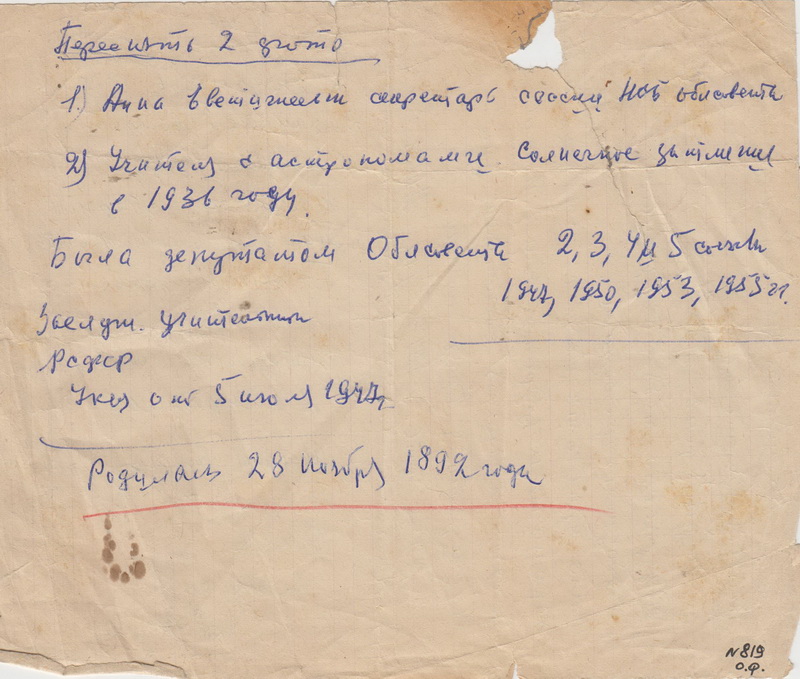 Переснять 2 фото
1.) Анна секретарь сессии облсовета
2) Учителя с астрономами. Солнечное затмение
в 1936 году.
Была депутатом Облсовета 2, 3, 4 и 5 созыв
1947, 1950, 1953, 1955 гг.
Заслуж. учительница
РСФСР
Указ от 5 июля 1947
Родилась 28 ноября 1892 года
N 819
О.Ф.